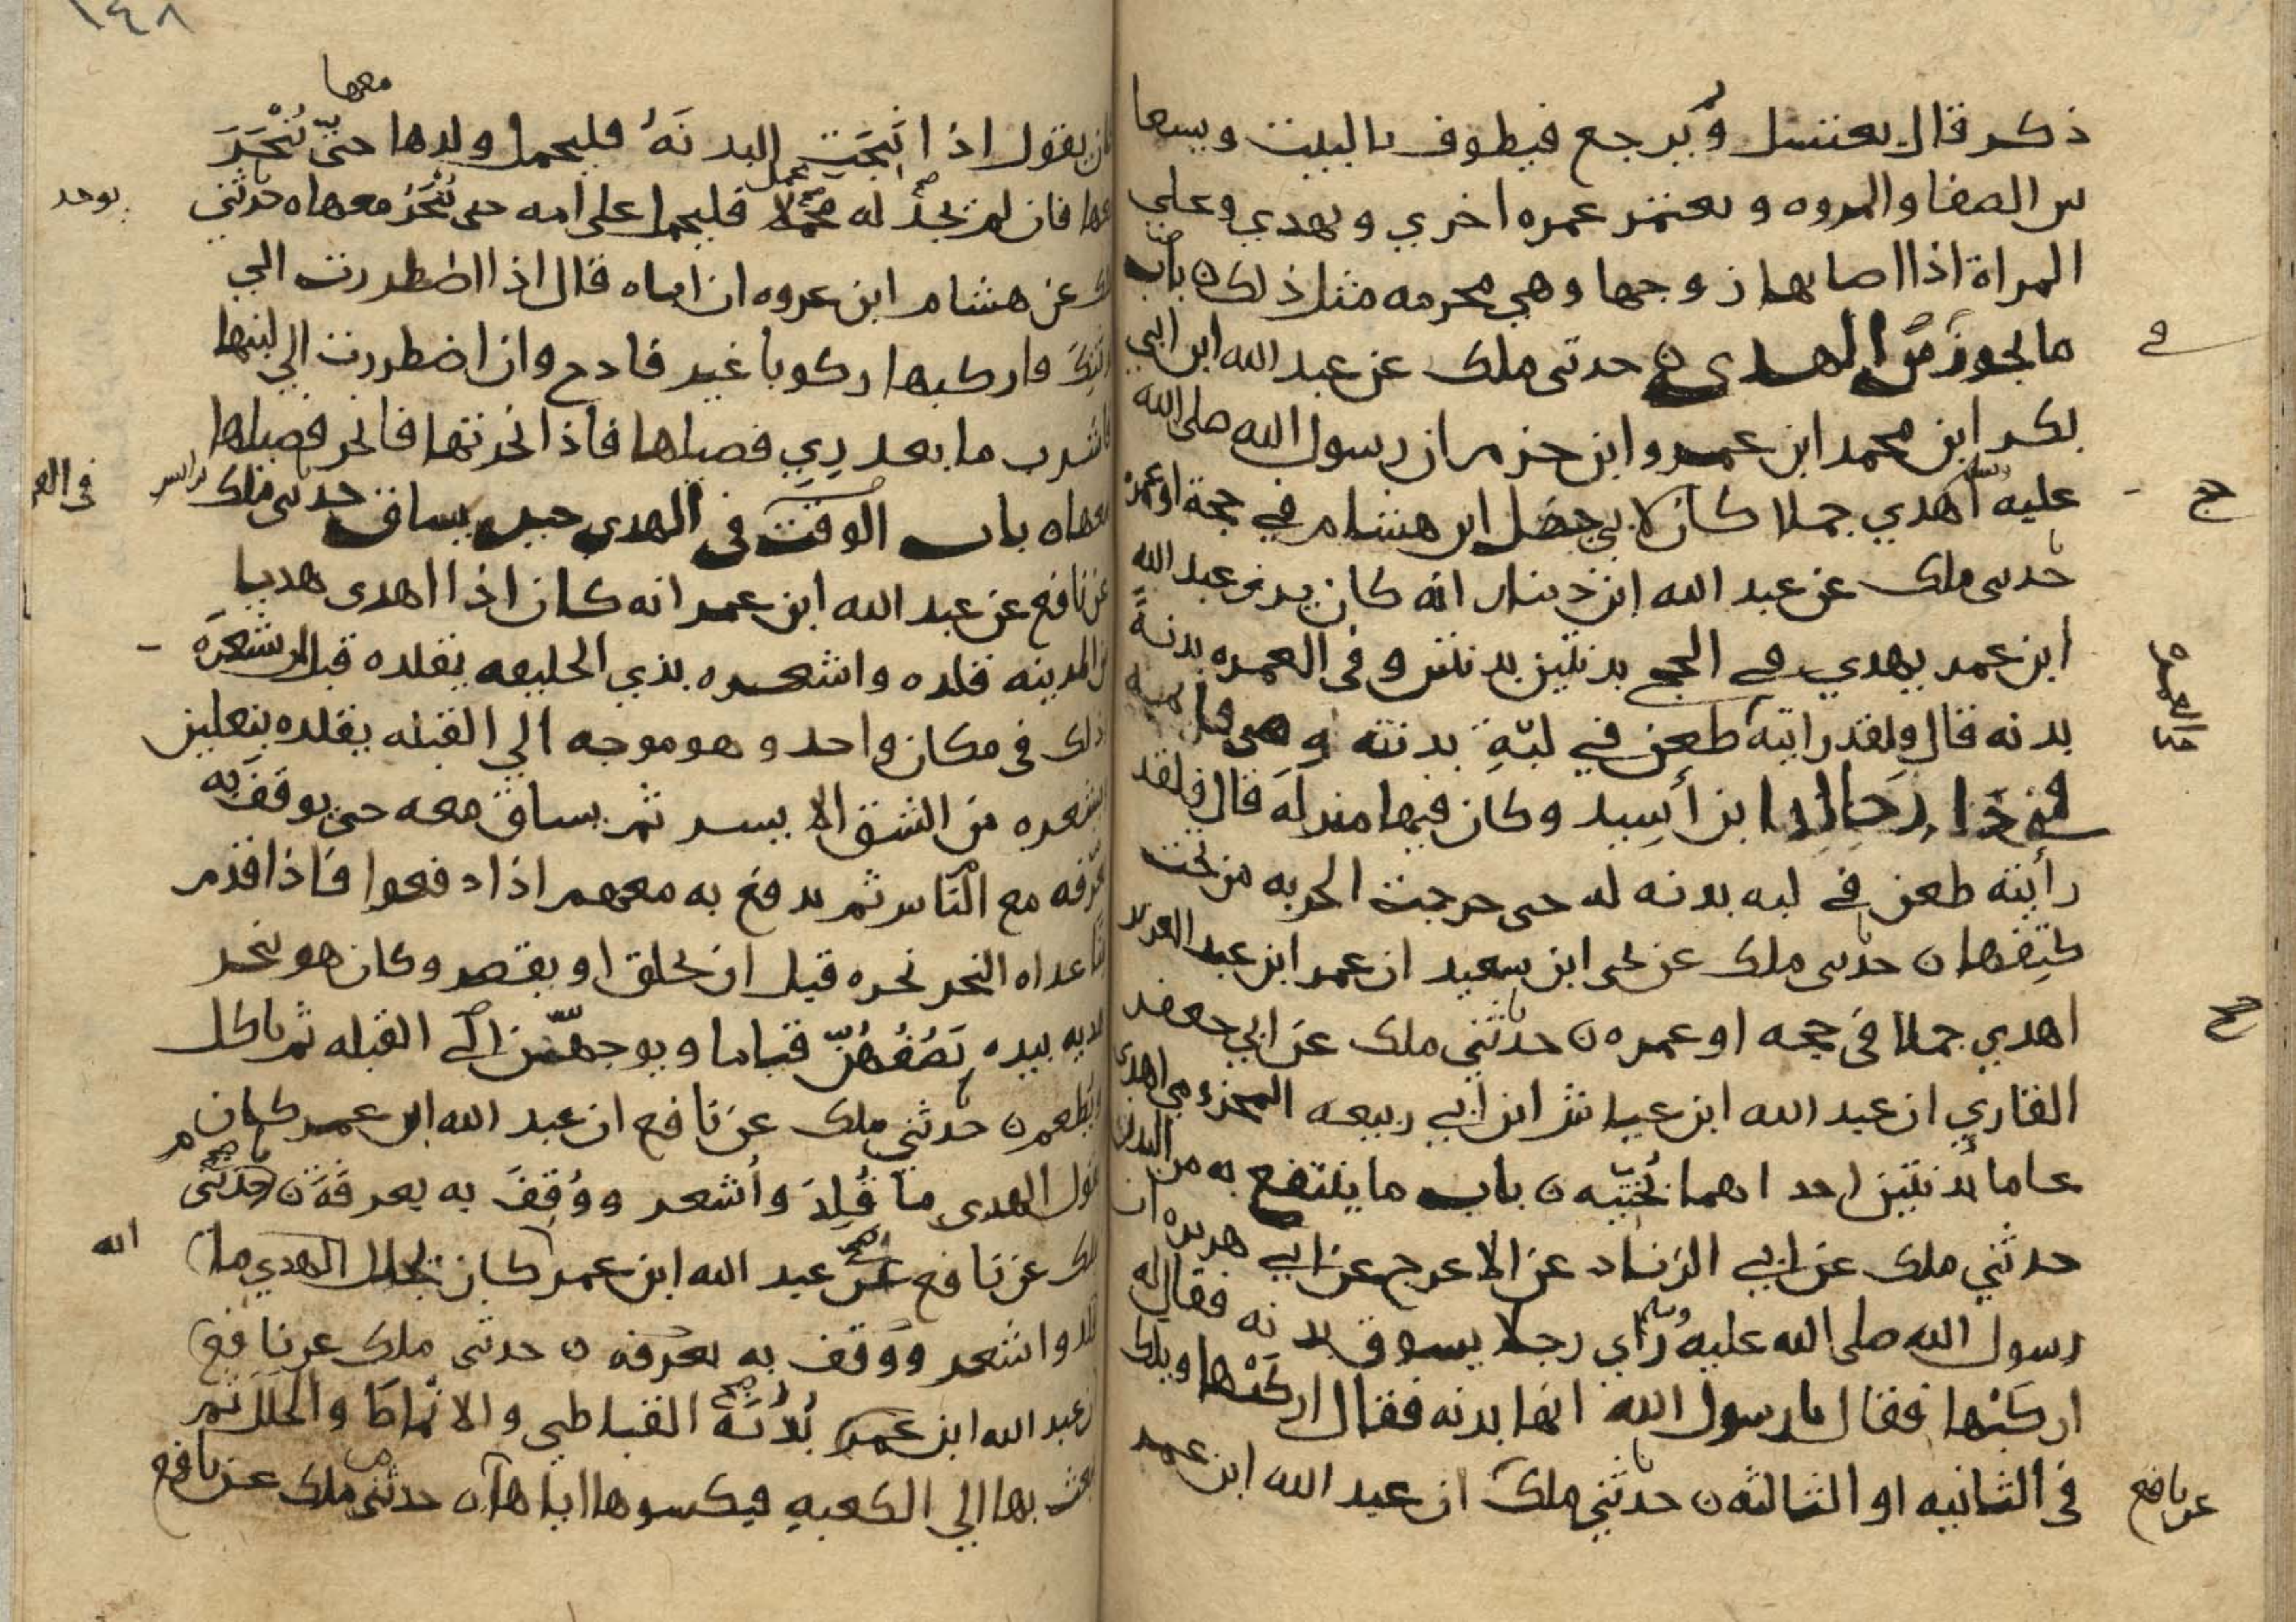 ذكر قال يغتسل ويرجع فيطوف بالبيت ويسعا
بين الصفا والمروه ويعتمر عمره اخري ويهدي وعلي
المراة اذا اصابها زوجها وهي محرمه مثل ذلك ه باب
ما يجوز من الهدي ه حدثني ملك عن عبد الله ابن ابي
في
بكر ابن محمد ابن عمرو ابن حزم ان رسول الله صلي الله
عليه وسلم اهدي جملا كان لابي جهل ابن هشام في حجة او عمرة
ح
حدثني ملك عن عبد الله ابن دينار انه كان يرى عبد الله
ابن عمر يهدي في الحج بدنتين بدنتين وفي العمره بدنةً
بدنه قال ولقد رايته طعن في لبّةِ بدنته وهي قايمه
في العمره
في دار خالد ابن أَسِيد وكان فيها منزله قال ولقد
رأيته طعن في لبه بدنه له حتي خرجت الحربه من تحت
كتِفها ه حدثني ملك عن يحي ابن سعيد ان عمر ابن عبد العزيز
اهدي جملا في حجه او عمره ه حدثني ملك عن ابي جعفر
القاري ان عبد الله ابن عياش ابن ابي ربيعه المخزومي اهدي
عاما بُدنتين احداهما نُجتيّه ه باب ما ينتفع به من البدن
حدثني ملك عن ابي الزناد عن الاعرج عن ابي هريره ان
رسول الله صلي الله عليه وسلم رأي رجلا يسوق بدنه فقال له
اركَبْها فقال يا رسول الله انها بدنه فقال اركَبْها ويلك
في الثانيه او الثالثه ه حدثني ملك ان عبد الله ابن عمر
عن نافع
١٤٨
معها
كان يقول اذا انتِجَتِ البدنَهُ فليحمل ولدها حتّي تُنْحَرَ
معها فان لم يجدْ له مَحْمَلا فليحمل علي امه حتي تُنْحَرُ معها ه حدثني
يوجد
ملك عن هشام ابن عروه ان اباه قال اذا اضطررت الي
بدنتِكَ فاركبها ركوبا غير فادح وان اضطررت الي لبنها
فاشرب ما بعد رِيِ فصيلها فاذا نحرتها فانحر فصيلها
معها ه باب الوقت في الهدي حين يساق حدثني ملك
عن نافع عن عبد الله ابن عمر انه كان اذا اهدي هديا
من المدينه قلده واشعره بذي الحليفه يقلده قبل ان يشعرَه
ذلك في مكان واحد وهو موجه الي القبله يقلده بنعلين
ويشعره من الشق الايسر ثم يساق معه حتي يوقفَ به
بعرفه مع الناس ثم يدفع به معهم اذا دفعوا فاذا قدم
غداه النحر نحره قبل ان يحلق او يقصر وكان هو ينحر
هديه بيده يَصُفُهُنّ قياما ويوجههّن الي القبله ثم ياكل
ويُطعِم ه حدثني ملك عن نافع ان عبد الله ابن عمر كان
يقول الهدي ما قُلِّدَ وأشعر ووُقِفَ به بعرفَة ه حدثني
ملك عن نافع عن عبد الله ابن عمر كان يجلل الهدي ما
قلد واشعر ووقف به بعرفه ه حدثني ملك عن نافع
ان عبد الله ابن عمر بُدْنَهُ القباطي والانماطَ والحُلَلَ ثم
يبعث بها الي الكعبهِ فيكسوها اياها ه حدثني ملك عن نافع